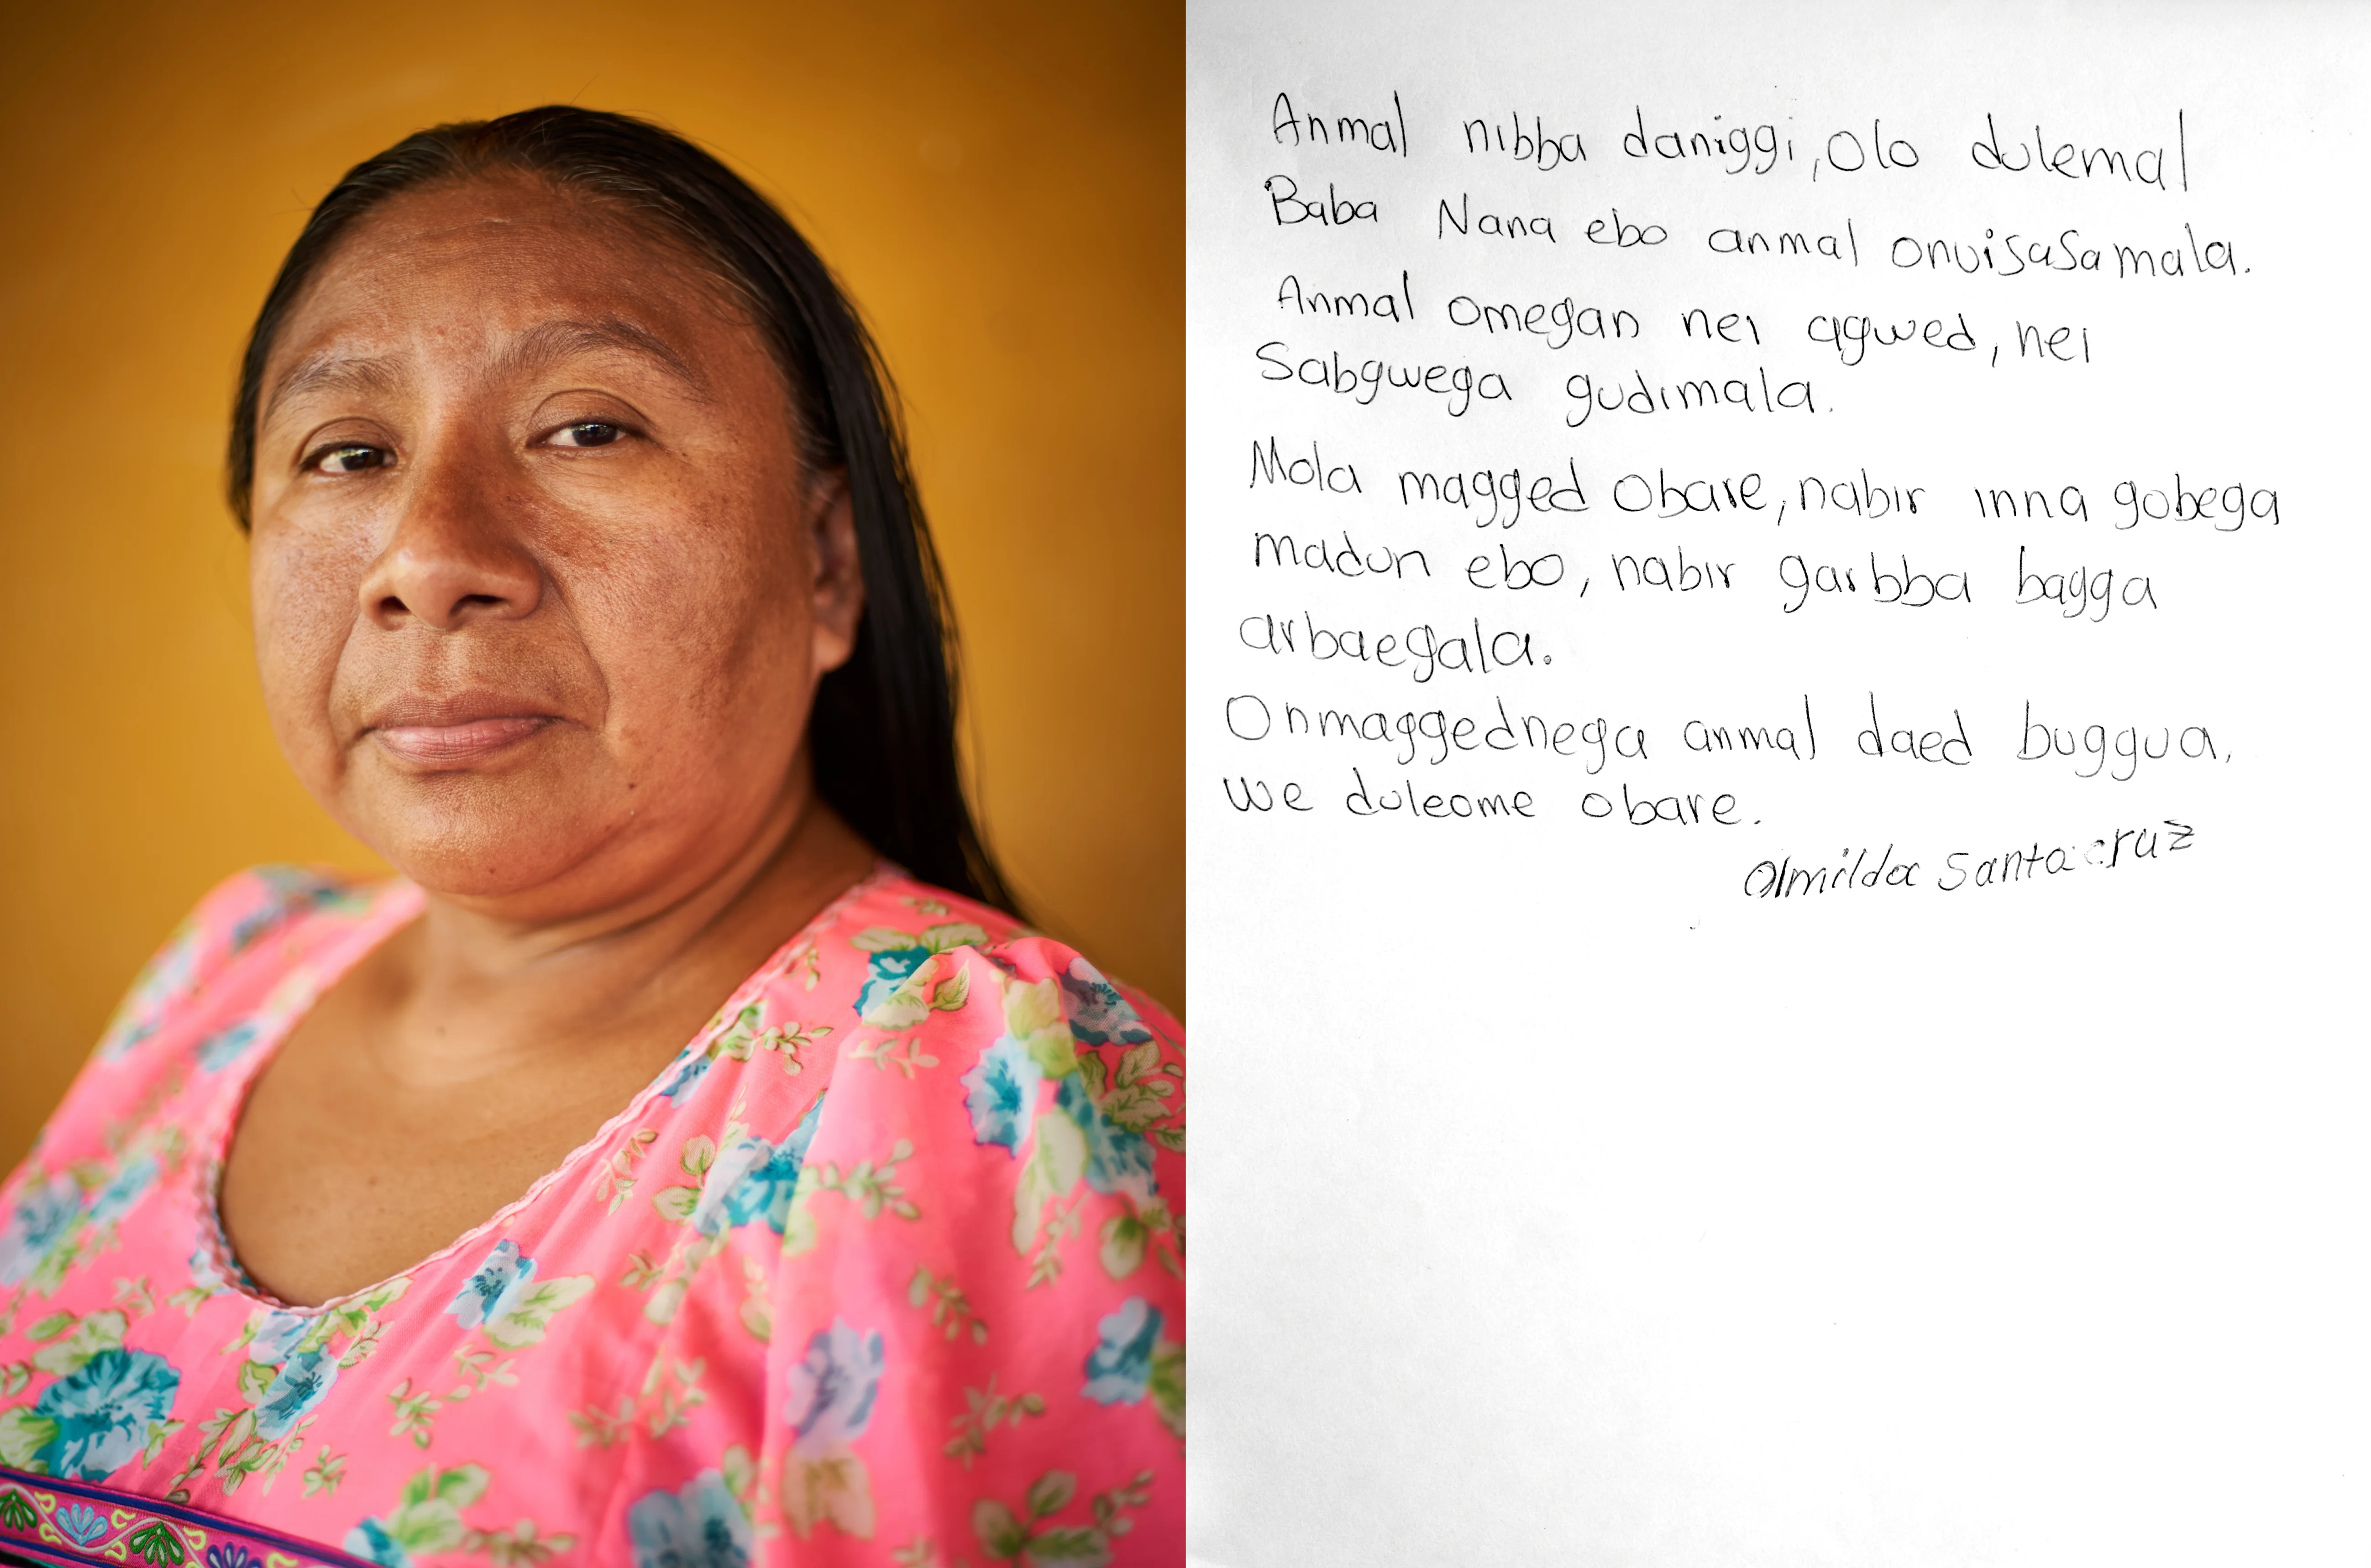 Anmal nibba daniggi, Olo dulemal
Baba Nana ebo anmal onuisasamala.
Anmal omegan nei agwed, nei
Sabgwega gudimala.
Mola magged obare, nabir inna gobega
madun ebo, nabir garbba bagga
arbaegala.
Onmaggednega anmal daed buggua,
we duleome obare.
Olmilda Santacruz